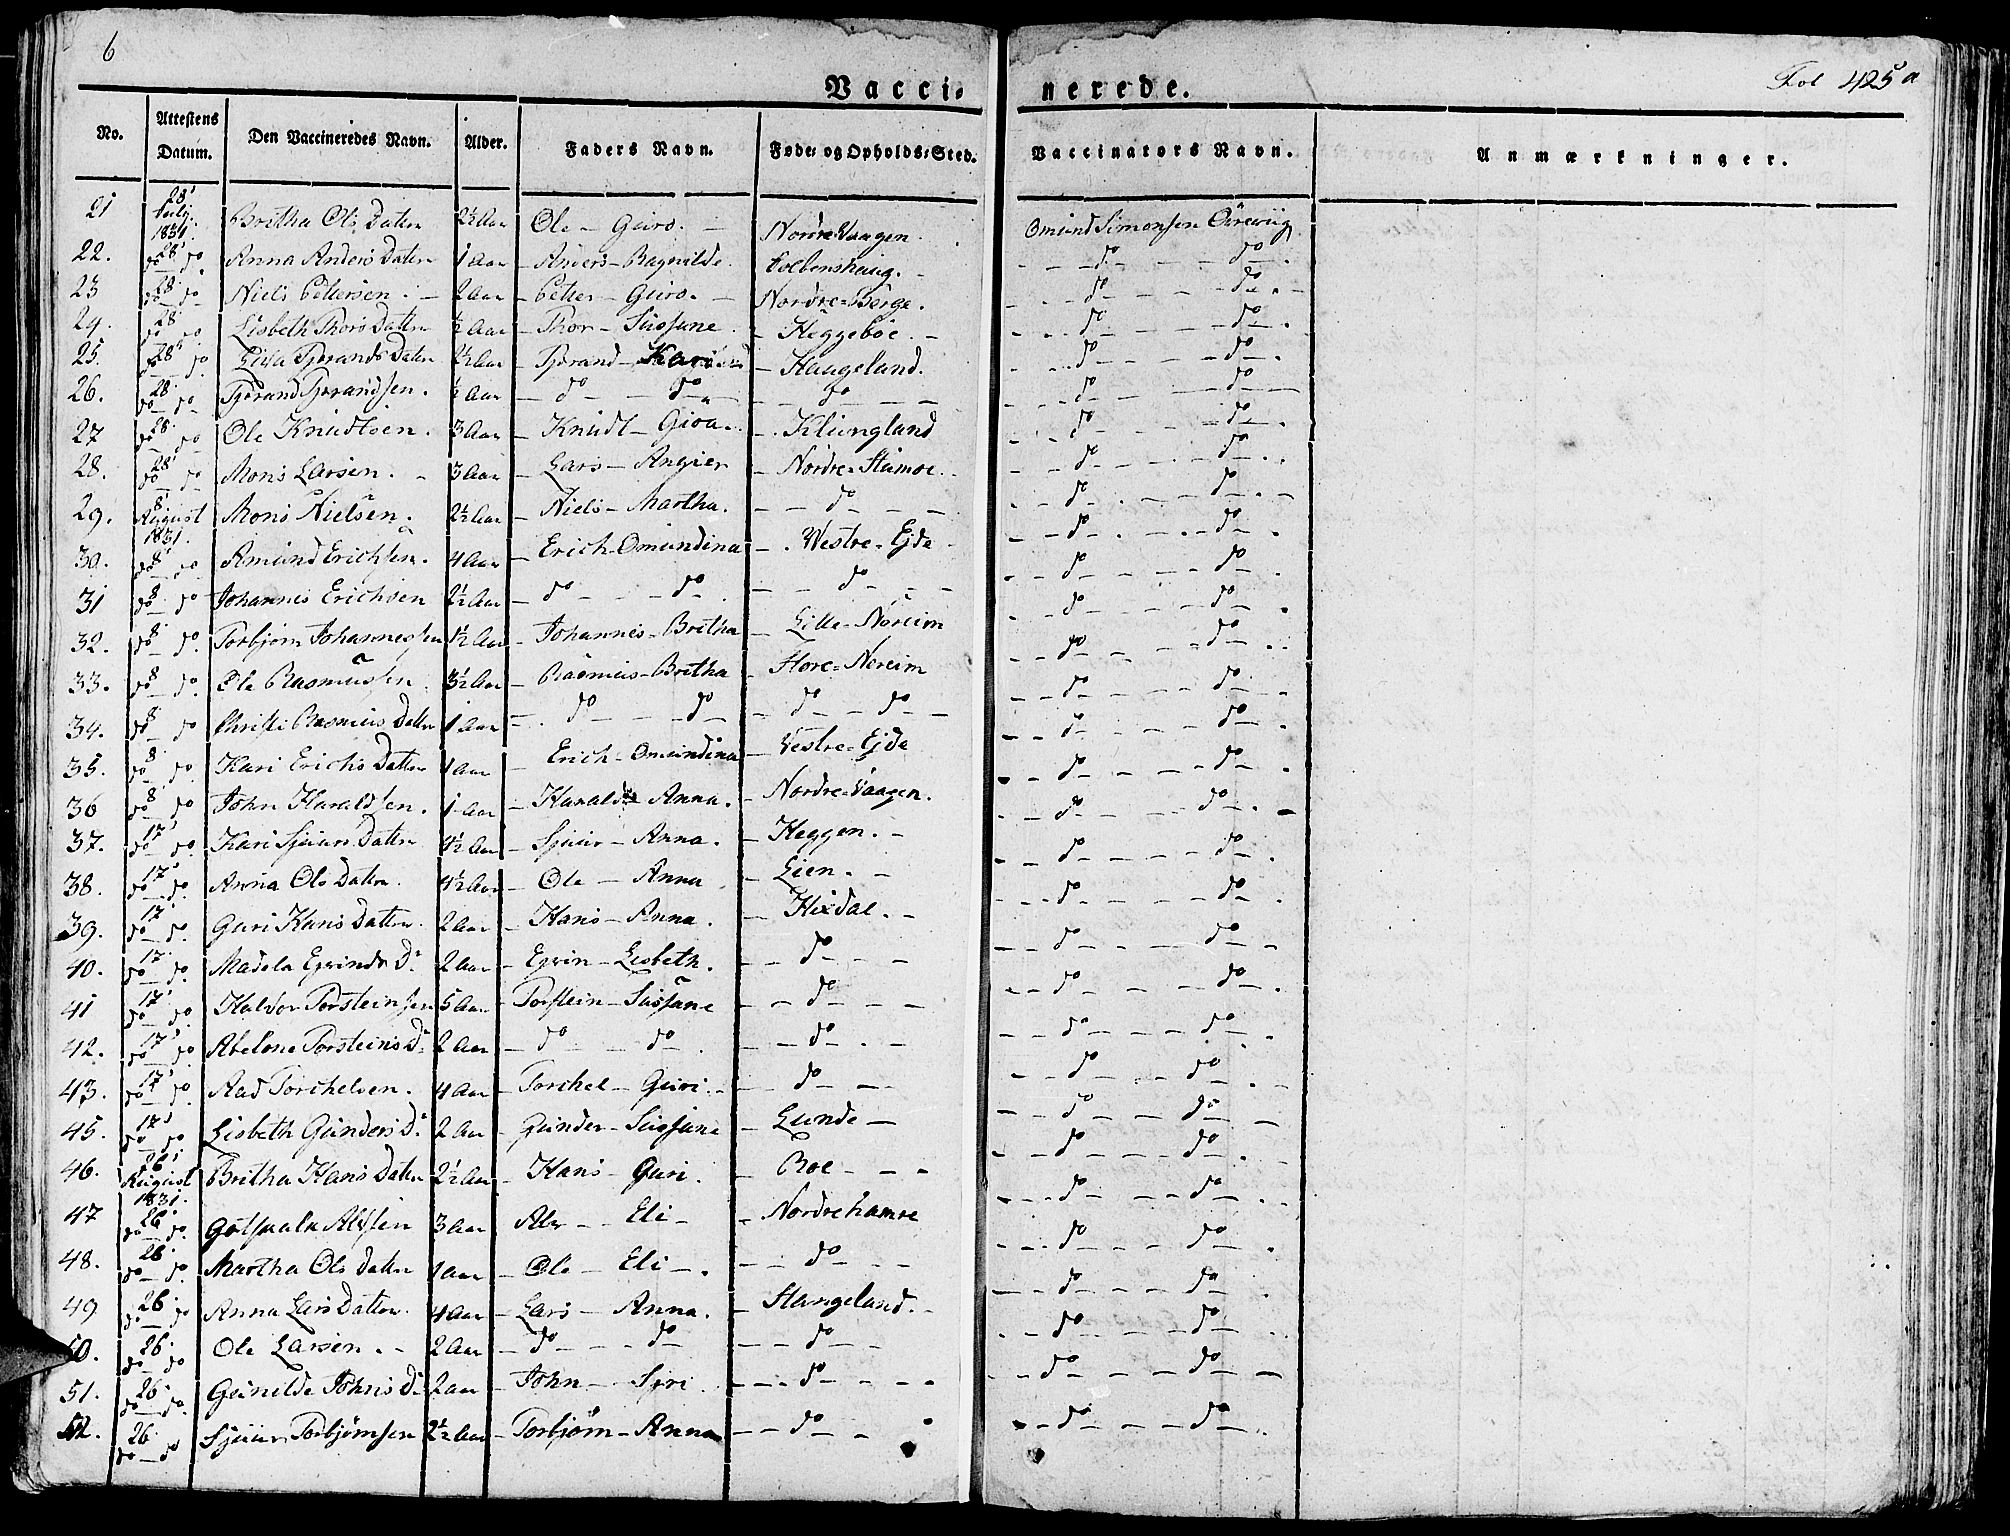 6
Vacci- nerede.
Fol 425 a
No. Attestens Datum. Den Vaccineredes Navn. Alder. Faders Navn. Føde- og Opholds-Sted. Vaccinators Navn. Anmærkninger.
21 28' Julij. 1831 Britha Ols Datter 2½ Aar Ole - Guro. - Nordre Vaagen. Omund Simonsen
22. 28' do do Anna Anders Datter 1 Aar - Anders - Ragnilde. do do
23 28' do do Niels Pettersen. - 2 Aar - Petter - Guro. - Nordre-Berge. do do
24. 28' do do Lisbeth Thors Datter ½ Aar - Thor - Sussane - Heggeboe. - do do
25. 28' do do Tjerands Datter 2½ Aar - Tjerand - Kari - Haugeland. do do
26. 28' do do Tjerand Tjerandsen. ½ Aar - do do - do - do do
27 28' do do Ole Knudtsen. 3 Aar - Knudt - - Klungland do do
28. 28' do do Mons Larsen. - 3 Aar - Lars - Angier - Nordre- do do
29. 8' August 1831. Mons Nielsen. 2½ Aar - Niels - Martha. - do - do do
30. 8' do do Amund Erichsen. 4 Aar - Erich - Omundina - Westre-Eide do do
31 8' do do Johannes Erichsen 2½ Aar - do do - do - do do
32. 8' do do Torbjørn Johannessen 1½ Aar - Johannes - Britha - Lille-Nöreim do do
33. 8' do do Ole Rasmussen 3½ Aar - Rasmus - Britha - Store-Nereim do do
34. 8' do do Christi Rasmus Datter 1 Aar - do do - do - do - do do
35. 8' do do Kari Erichs Datter 1 Aar - Erich - Omundina - Vestre-Eide do do
36 8' do do John Haraldsen. 1 Aar - Harald - Anna. - Nordre-Vaagen. do do
37. 17' do do Kari Sjuurs Datter 4½ Aar - Sjuur - Anna. - Heggen. - do do
38. 17' do do Anna Ols Datter. 4½ Aar - Ole - Anna - Lien. - do do
39. 17' do do Guri Hans Datter. 2 Aar - Hans - Anna. - Hixdal. - do do
40. 17' do do Madela Egvinds D: 2 Aar - Egvin - Lisbeth. - do - do do
41 17' do do Halvor Torsteinsen 5 Aar - Torstein - Sussane - do - do do
42. 17' do do Abelone Torsteins D: 2 Aar - do do - do - do do
43. 17' do do Aad Torchelsen. 4 Aar - Torchel - Guri - do - do do
45. 17' do do Lisbeth Gunders D: 2 Aar - Gunder - Sussane - Lunde - do do
46. 26' August 1831. Britha Hans Datter 2½ Aar - Hans - Guri. - Boe - do do
47 26' do do Gotskalk Alfsen 3 Aar - Eli - Nordrehamre do do
48. 26' do do Martha Ols Datter 1 Aar - Ole - Eli - - do - do do
49 26' do do Anna Lars Datter. 4 Aar - Lars - Anna. - Stangeland. - do do
50. 26' do do Ole Larsen. - 2 Aar - do do - do - do do
51. 26' do do Gunilde Johns D: 2 Aar - John - Siri - do - do do
52. 26' do do Sjuur Torbjørnsen 2½ Aar - Torbjørn - Anna - do - do do